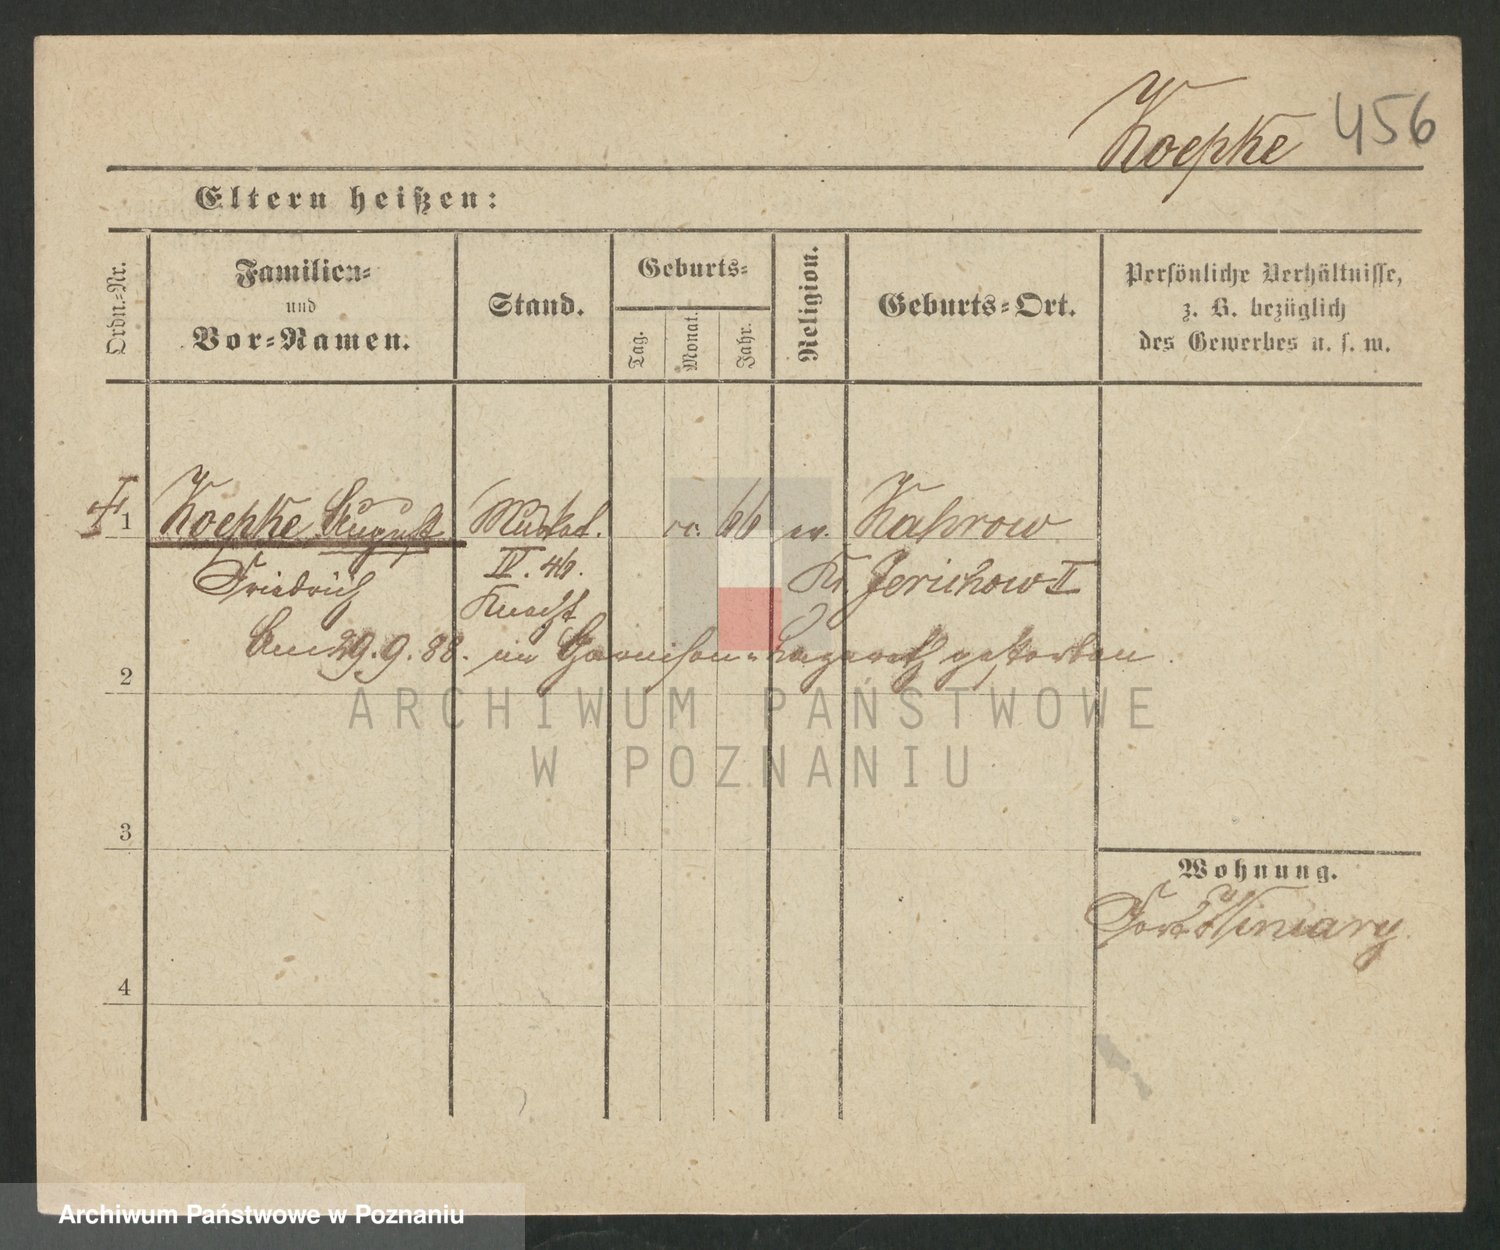 Koepke 456
Eltern heißen:
Ordn.-Nr.
Familien-
und
Vor-Namen.
Stand.
Geburts-
Tag.
Monat.
Jahr.
Religion.
Geburts-Ort.
Persönliche Verhältnisse,
z. B. bezüglich
des Gewerbes u. s. w.
1 Koepke August Musket. 66 ev. Kahrow
Friedrich IV. 46. Kr. Jerichow II
Knecht
Am 29. 9. 88. im Garnison-Lazareth gestorben.
2
ARCHIWUM PAŃSTWOWE
W POZNANIU
3
Wohnung.
Fort Winiary
4
Archiwum Państwowe w Poznaniu